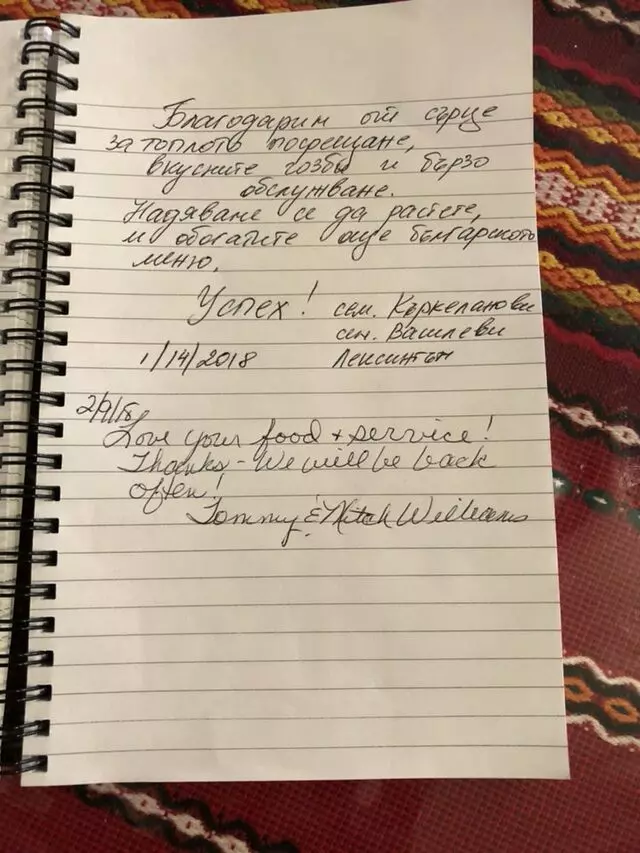 Благодарим от сърце
за топлото посрещане,
вкусните гозби и бързо
обслужване.
Надяваме се да растете,
и обогатите още българското
меню.
Успех! сем. Къркеланови
сем. Василеви
1/14/2018 Лексингтън
2/9/18
Love your food + service!
Thanks - We will be back
often!
Tommy & Mitch Williams